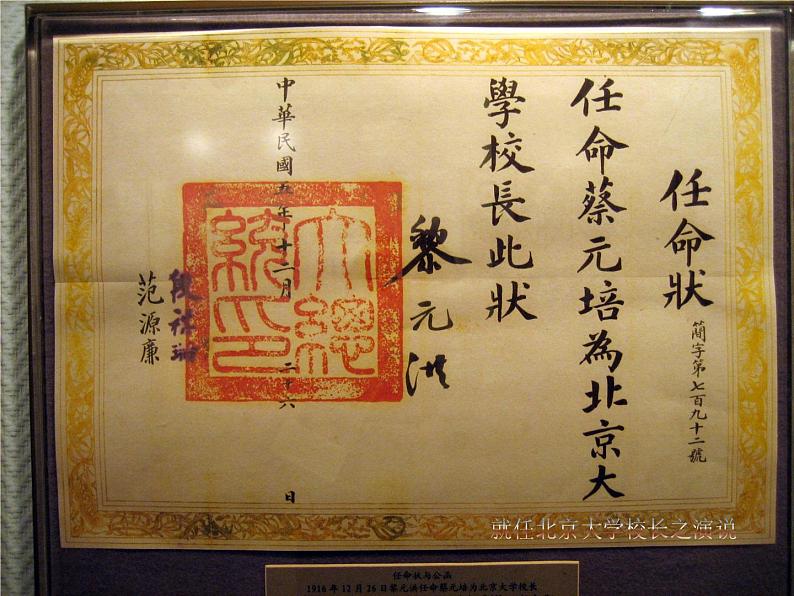 任命狀
簡字第七百九十二號
任命蔡元培為北京大
學校長此狀
黎元洪
大總
統印
中華民國五年十二月二十六日
段祺瑞
范源廉
就任北京大学校长之演说
任命状与公函
1916 年 12 月 26 日黎元洪任命蔡元培为北京大学校长